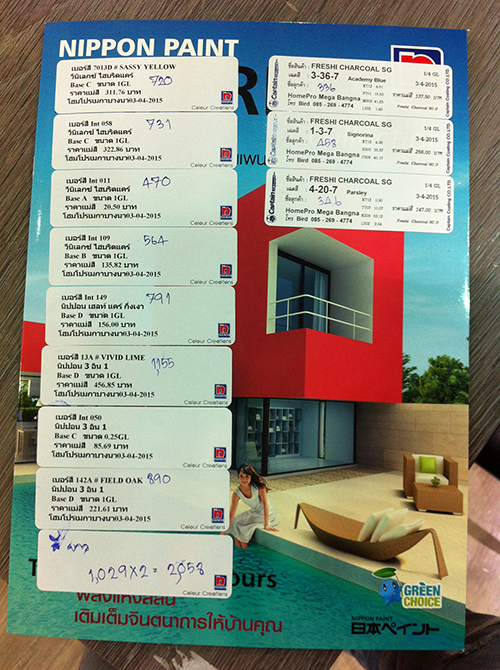 NIPPON PAINT
เบอร์สี 7013D # SASSY YELLOW
วีนิเลกซ์ ไฮบริดแคร์ 520
Base C ขนาด 1GL
ราคาแม่สี 311.76 บาท
โฮมโปรเมกาบางนา03-04-2015
Colour Creations
เบอร์สี Int 058
วีนิเลกซ์ ไฮบริดแคร์ 731
Base C ขนาด 1GL
ราคาแม่สี 322.86 บาท
โฮมโปรเมกาบางนา03-04-2015
Colour Creations
เบอร์สี Int 011
วีนิเลกซ์ ไฮบริดแคร์ 470
Base A ขนาด 1GL
ราคาแม่สี 20.50 บาท
โฮมโปรเมกาบางนา03-04-2015
Colour Creations
เบอร์สี Int 109
วีนิเลกซ์ ไฮบริดแคร์ 564
Base B ขนาด 1GL
ราคาแม่สี 135.82 บาท
โฮมโปรเมกาบางนา03-04-2015
Colour Creations
เบอร์สี Int 149 791
นิปปอน เฮลท์ แคร์ กึ่งเงา
Base D ขนาด 1GL
ราคาแม่สี 156.00 บาท
โฮมโปรเมกาบางนา03-04-2015
Colour Creations
เบอร์สี 13A # VIVID LIME
นิปปอน 3 อิน 1 1,155
Base D ขนาด 1GL
ราคาแม่สี 456.85 บาท
โฮมโปรเมกาบางนา03-04-2015
Colour Creations
เบอร์สี Int 050
นิปปอน 3 อิน 1
Base C ขนาด 0.25GL
ราคาแม่สี 85.69 บาท
โฮมโปรเมกาบางนา03-04-2015
Colour Creations
เบอร์สี 142A # FIELD OAK 890
นิปปอน 3 อิน 1
Base D ขนาด 1GL
ราคาแม่สี 221.61 บาท
โฮมโปรเมกาบางนา03-04-2015
Colour Creations
1,029 x 2 = 2,058
Captain
ชื่อสินค้า : FRESHI CHARCOAL SG
เฉดสี : 3-36-7 1/4 GL
Academy Blue
336 3-4-2015
HomePro Mega Bangna
โทร Bird 085 - 269 - 4774
Captain Coating CO.,LTD
Captain
ชื่อสินค้า : FRESHI CHARCOAL SG
เฉดสี : 1-3-7 1/4 GL
Signorina
458 3-4-2015
HomePro Mega Bangna
โทร Bird 085 - 269 - 4774
Captain Coating CO.,LTD
Captain
ชื่อสินค้า : FRESHI CHARCOAL SG
เฉดสี : 4-20-7 1/4 GL
Parsley
346 3-4-2015
HomePro Mega Bangna
โทร Bird 085 - 269 - 4774
Captain Coating CO.,LTD
ours
พลังแห่งสีสัน
เติมเต็มจินตนาการให้บ้านคุณ
GREEN
CHOICE
NIPPON PAINT
日本ペイント